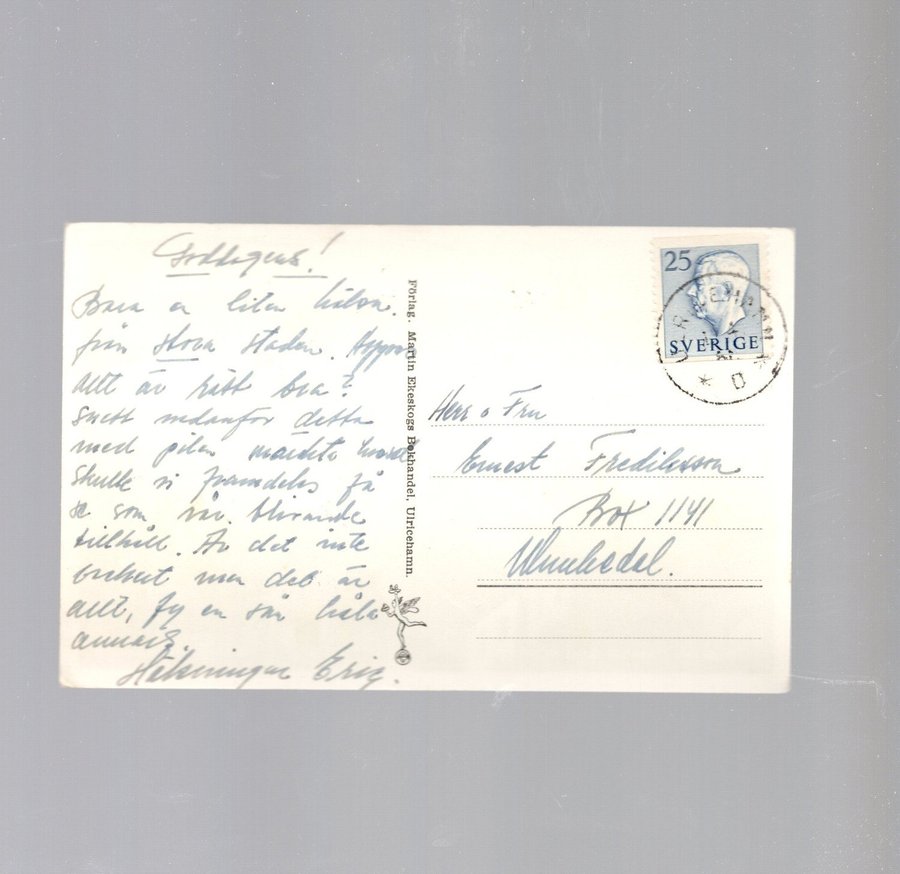 Goddagens!
Bara en liten hälsn.
från stora staden. Hoppas
allt är rätt bra?
Snett nedanför detta
med pilen
skulle vi framdeles få
se som vår blivande
tillhåll. Är det inte
vackert men det är
allt, fy en sån håla
annars.
Hälsningar Eric.
Förlag. Martin Ekeskogs Bokhandel, Ulricehamn.
25
SVERIGE
ULRICEHAMN
D
Herr o Fru
Ernest Fredriksson
Box 1141
Munkedal.